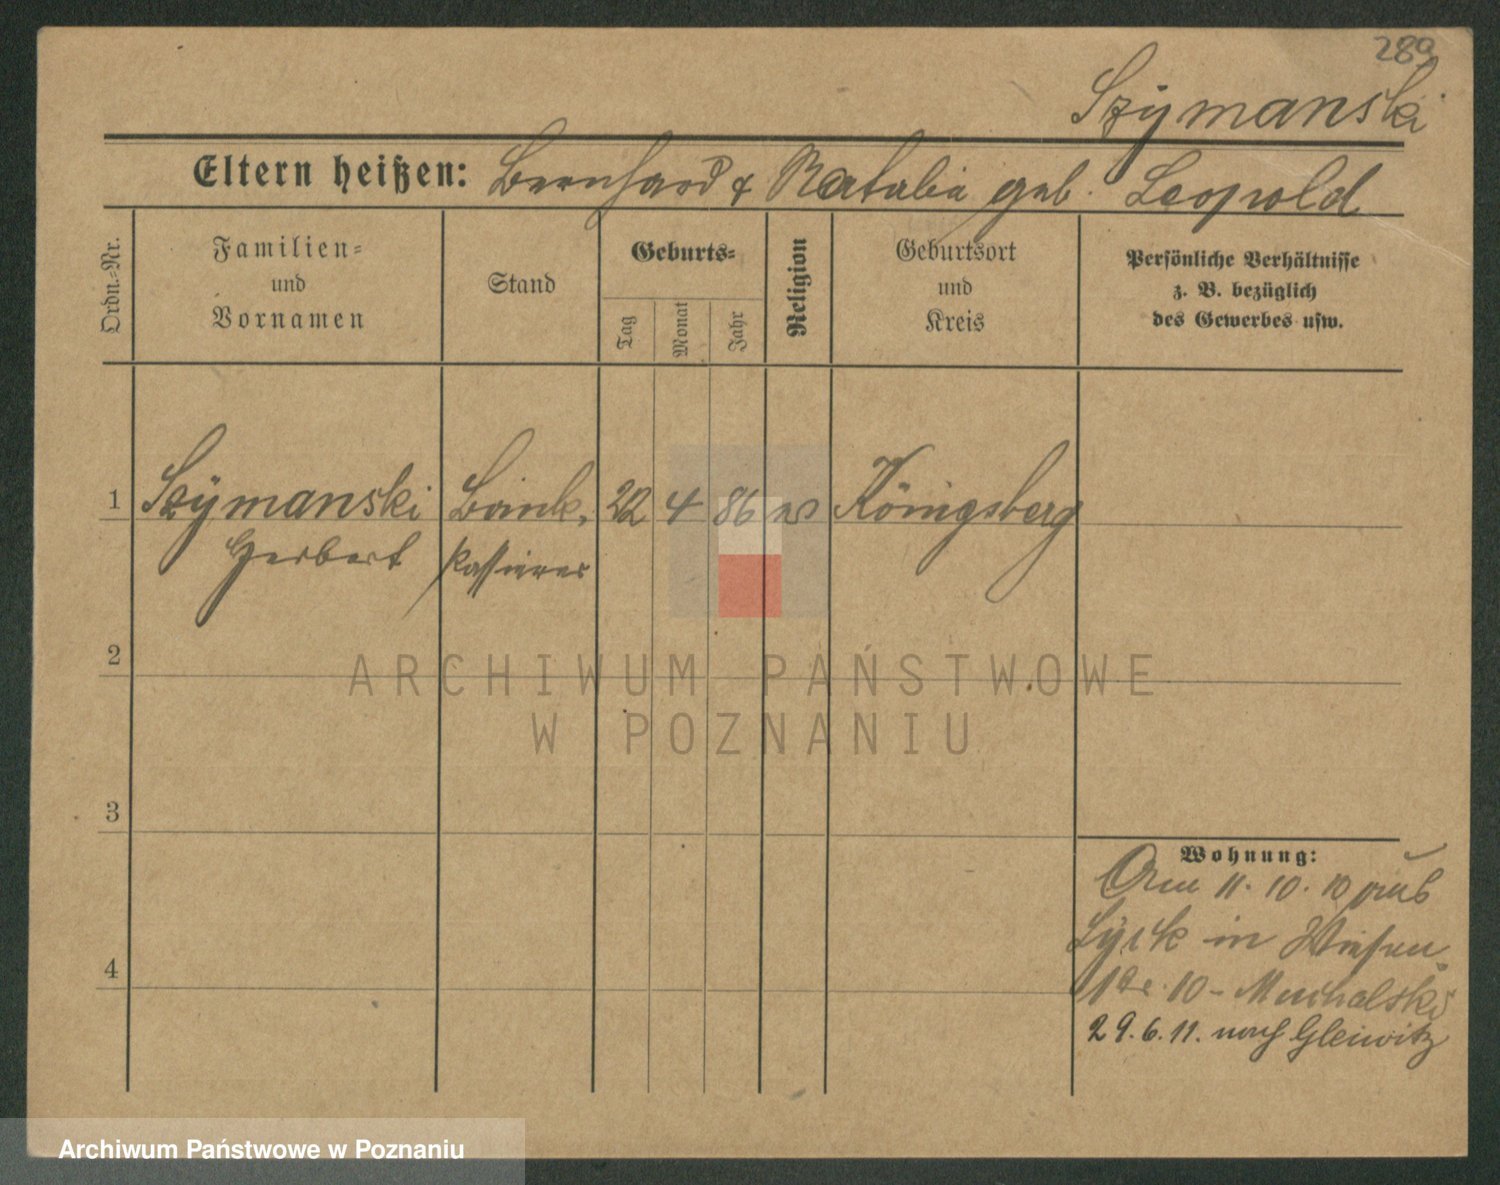 289
Szÿmanski
Eltern heißen: Bernhard & Natalie geb. Leopold
Ordn.-Nr.
Familien-
und
Vornamen
Stand
Geburts-
Tag
Monat
Jahr
Religion
Geburtsort
und
Kreis
Persönliche Verhältnisse
z. B. bezüglich
des Gewerbes usw.
1 Szÿmanski Bank- 22 4 86 Königsberg
Herbert Kassierer
2
3
4
Wohnung:
Am 11. 10. 10 aus
Lyck in Wiesen-
10 - Michalski
29. 6. 11. nach Gleiwitz
ARCHIWUM PAŃSTWOWE
W POZNANIU
Archiwum Państwowe w Poznaniu